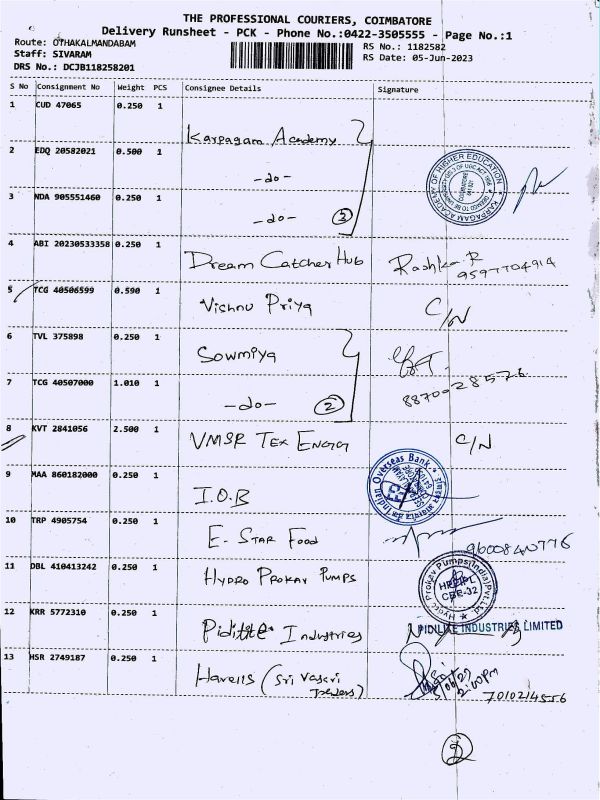 THE PROFESSIONAL COURIERS, COIMBATORE
Delivery Runsheet - PCK - Phone No.:0422-3505555 - Page No.:1
Route: OTHAKALMANDABAM
RS No.: 1182582
Staff: SIVARAM
RS Date: 05-Jun-2023
DRS No.: DCJB118258201
S No Consignment No Weight PCS Consignee Details Signature
1 CUD 47065 0.250 1 Karpagam Academy
2 EDQ 20582021 0.500 1 -do-
KARPAGAM ACADEMY OF HIGHER EDUCATION
3 NDA 905551460 0.250 1 -do- 3
4 ABI 20230533358 0.250 1 Dream Catcher Hub Rashka R
9597704914
5 TCG 40506599 0.590 1 Vishnu Priya C/N
6 TVL 375898 0.250 1 Sowmiya
7 TCG 40507000 1.010 1 -do- 2 8870028576
8 KVT 2841056 2.500 1 VMSR Tex Energy C/N
9 MAA 860182000 0.250 1 I.O.B
Indian Overseas Bank
10 TRP 4905754 0.250 1 E-Star Food 9600840776
11 DBL 410413242 0.250 1 Hydro Prokav Pumps
Hydro Prokav Pumps(India)Pvt.Ltd.
HPPIPL
CBE-32
12 KRR 5772310 0.250 1 Pidilite Industries
PIDILITE INDUSTRIES LIMITED
13 HSR 2749187 0.250 1 Havells (Sri Vasavi
Traders)
2:40pm
7010214556